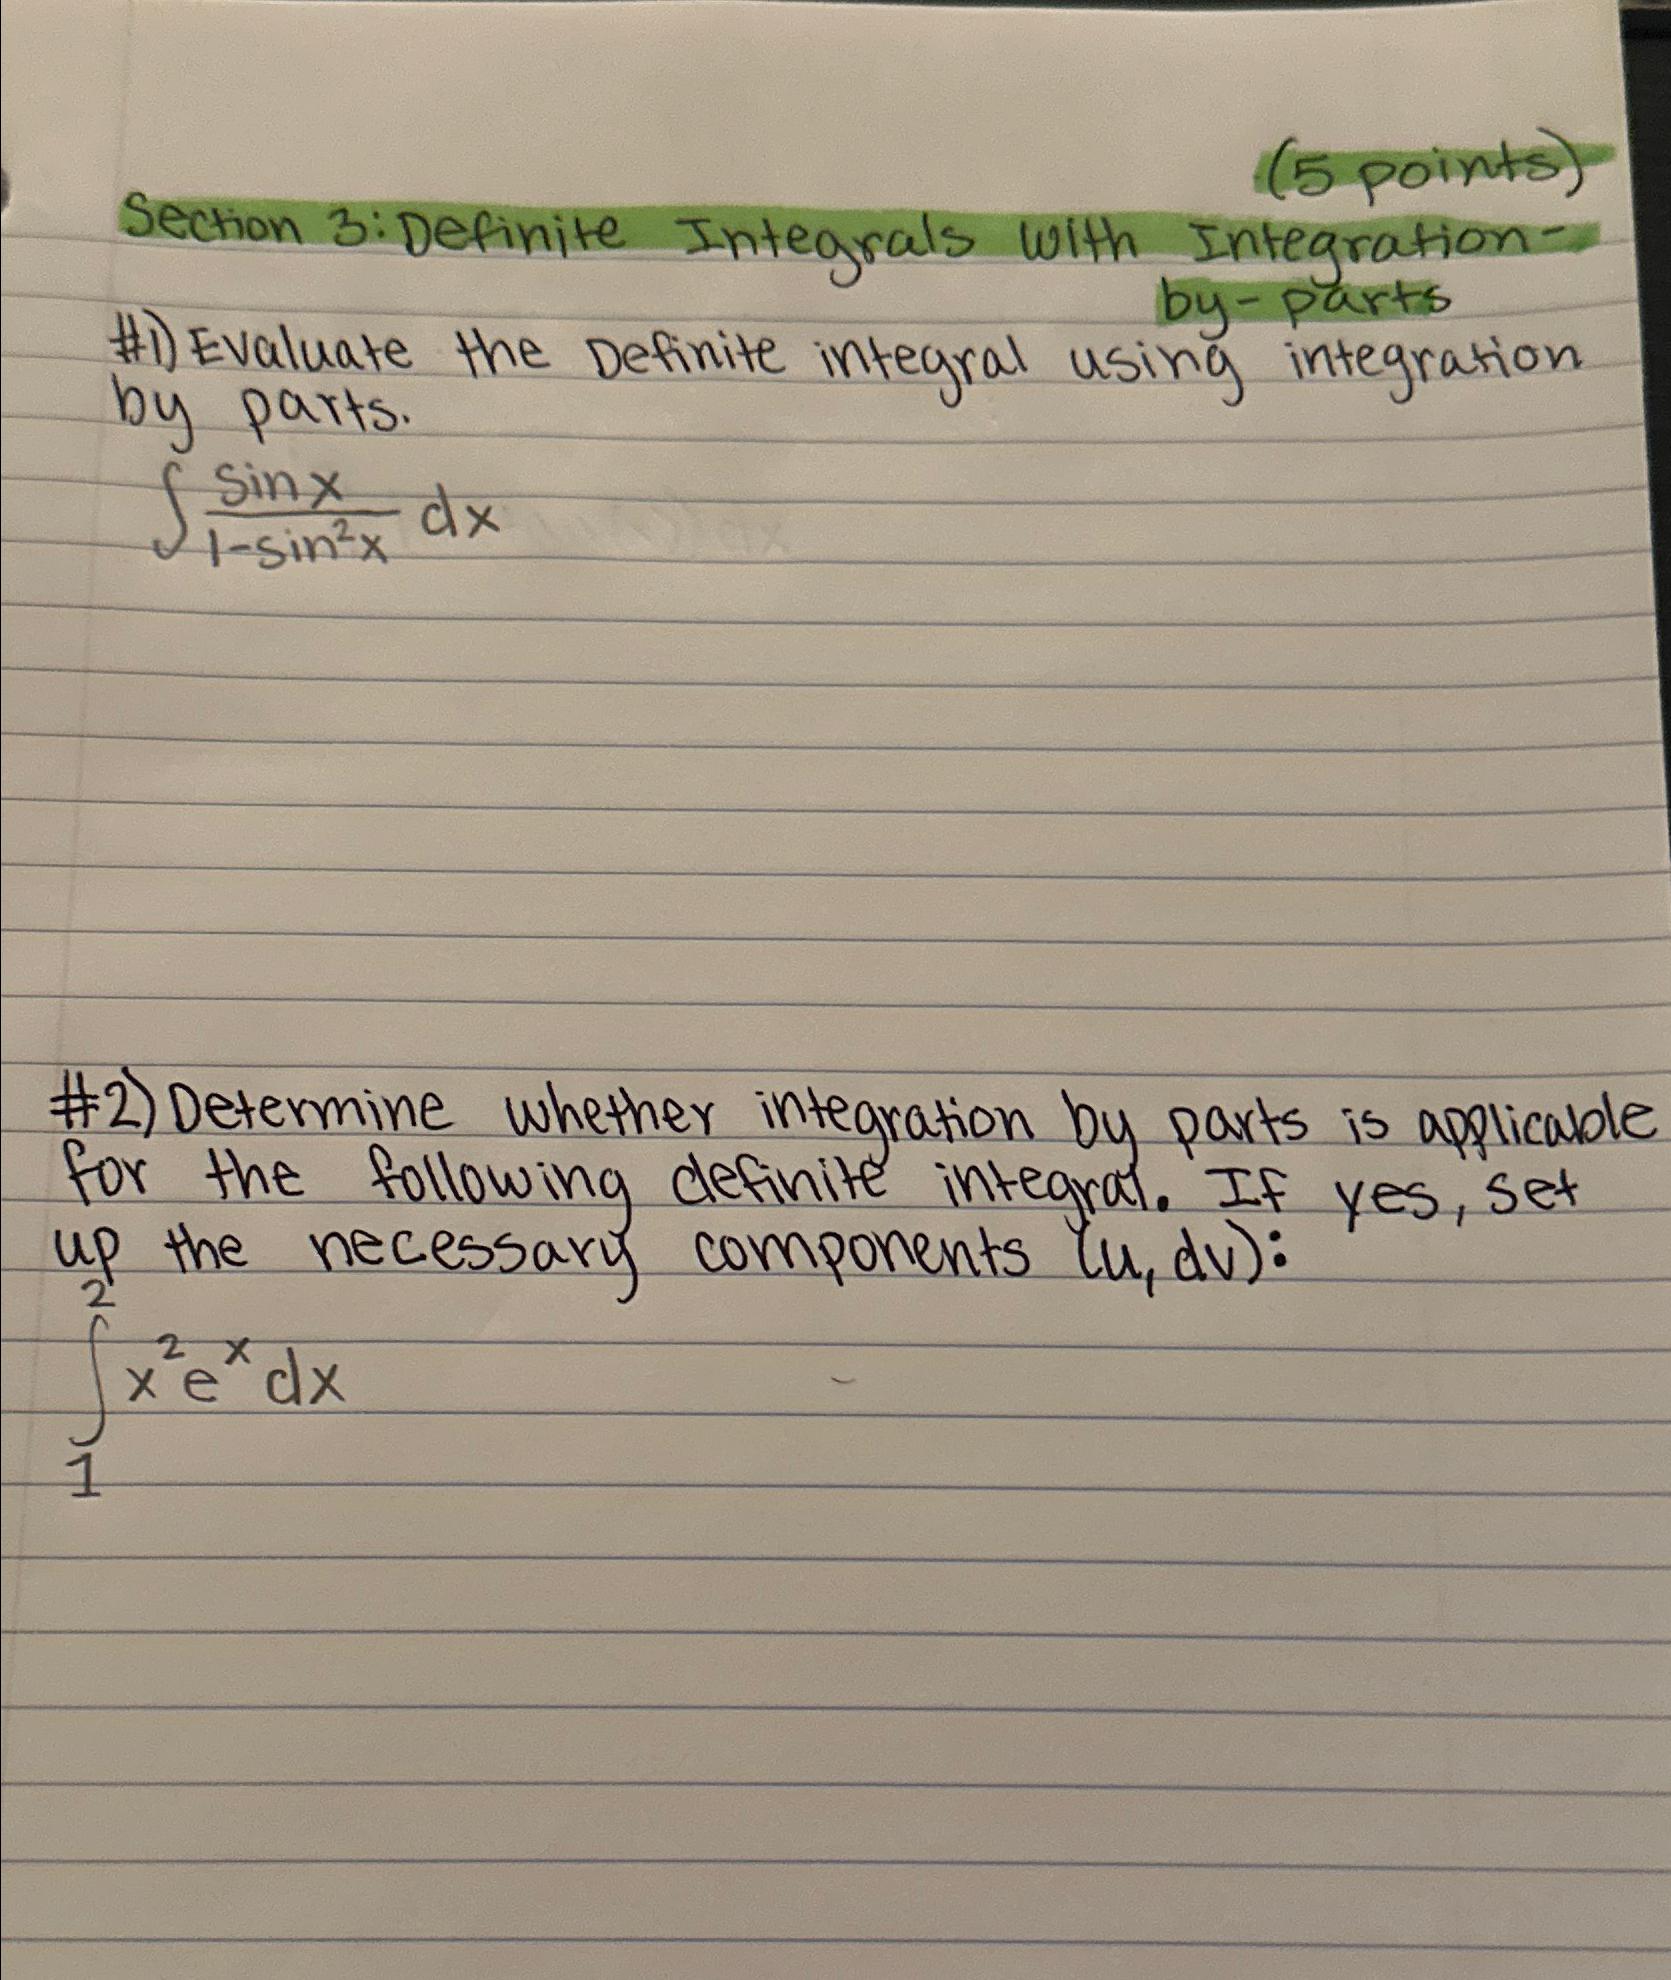 (5 points)
Section 3: Definite Integrals with Integration-
by-parts
#1) Evaluate the Definite integral using integration
by parts.
∫ sin x / 1-sin²x dx
#2) Determine whether integration by parts is applicable
for the following definite integral. If yes, set
up the necessary components (u, dv):
2
∫ x²eˣ dx
1